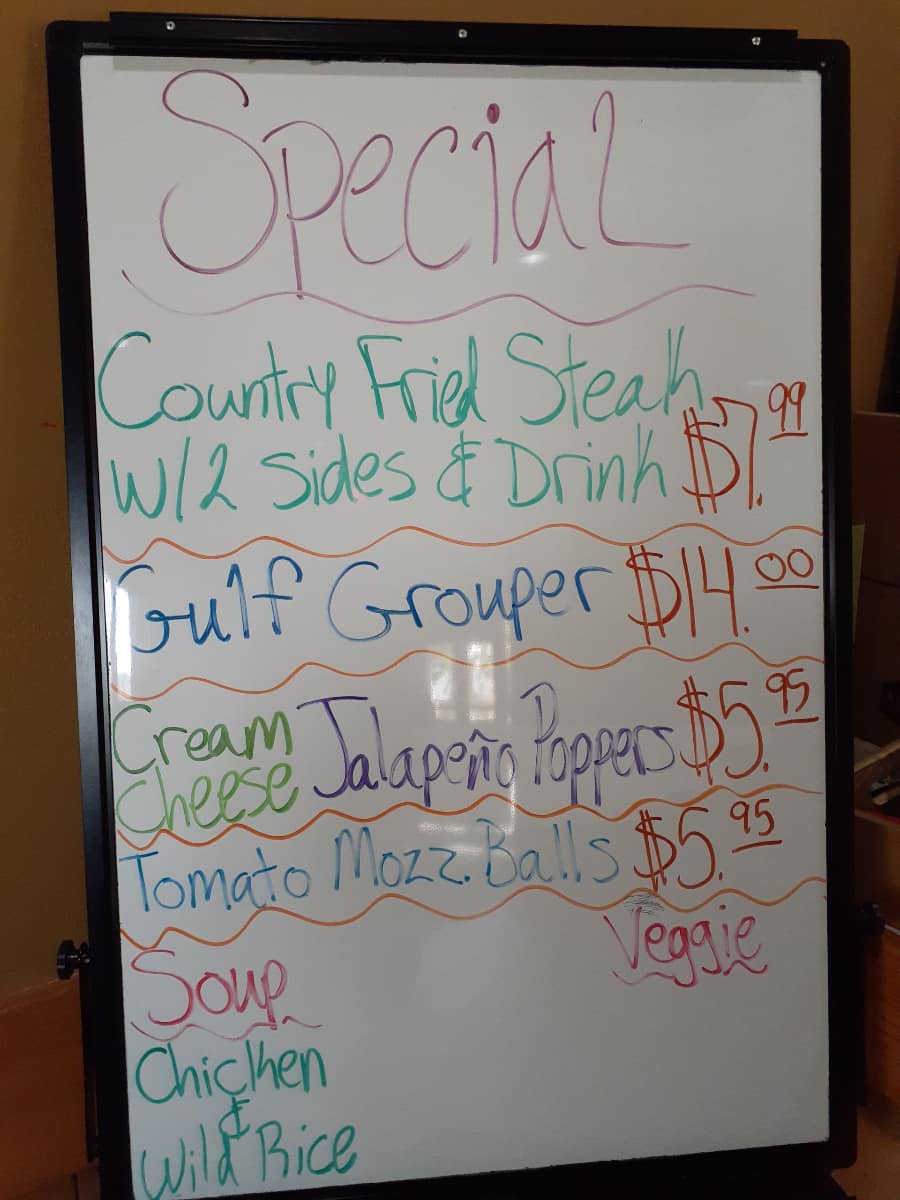 Special
Country Fried Steak
W/2 Sides & Drink $7.99
Gulf Grouper $14.00
Cream
Cheese Jalapeño Poppers $5.95
Tomato Mozz. Balls $5.95
Veggie
Soup
Chicken
&
Wild Rice